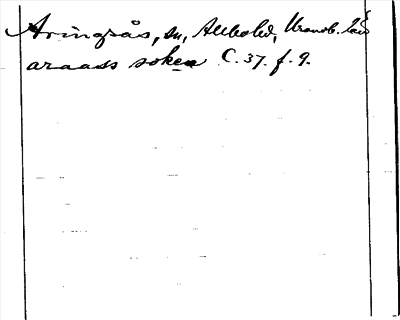 Aringsås, sn, Allbohd, Kronob. län
araass soken C. 37. f. 9.